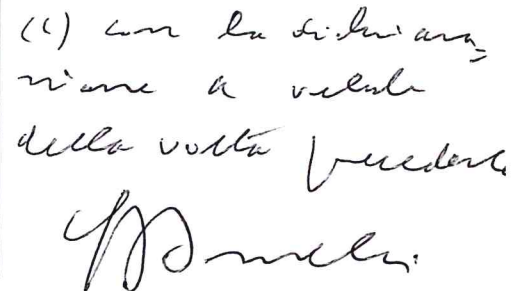 (1) con la dichiara=
zione a verbale
della volta precedente